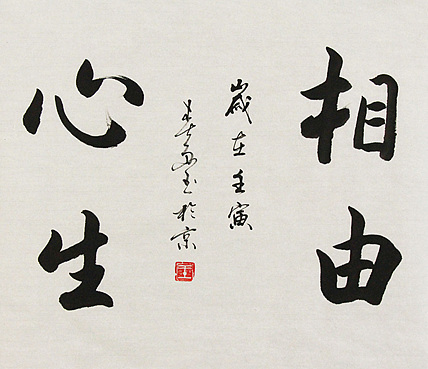 相由
心生
歲在壬寅
于京